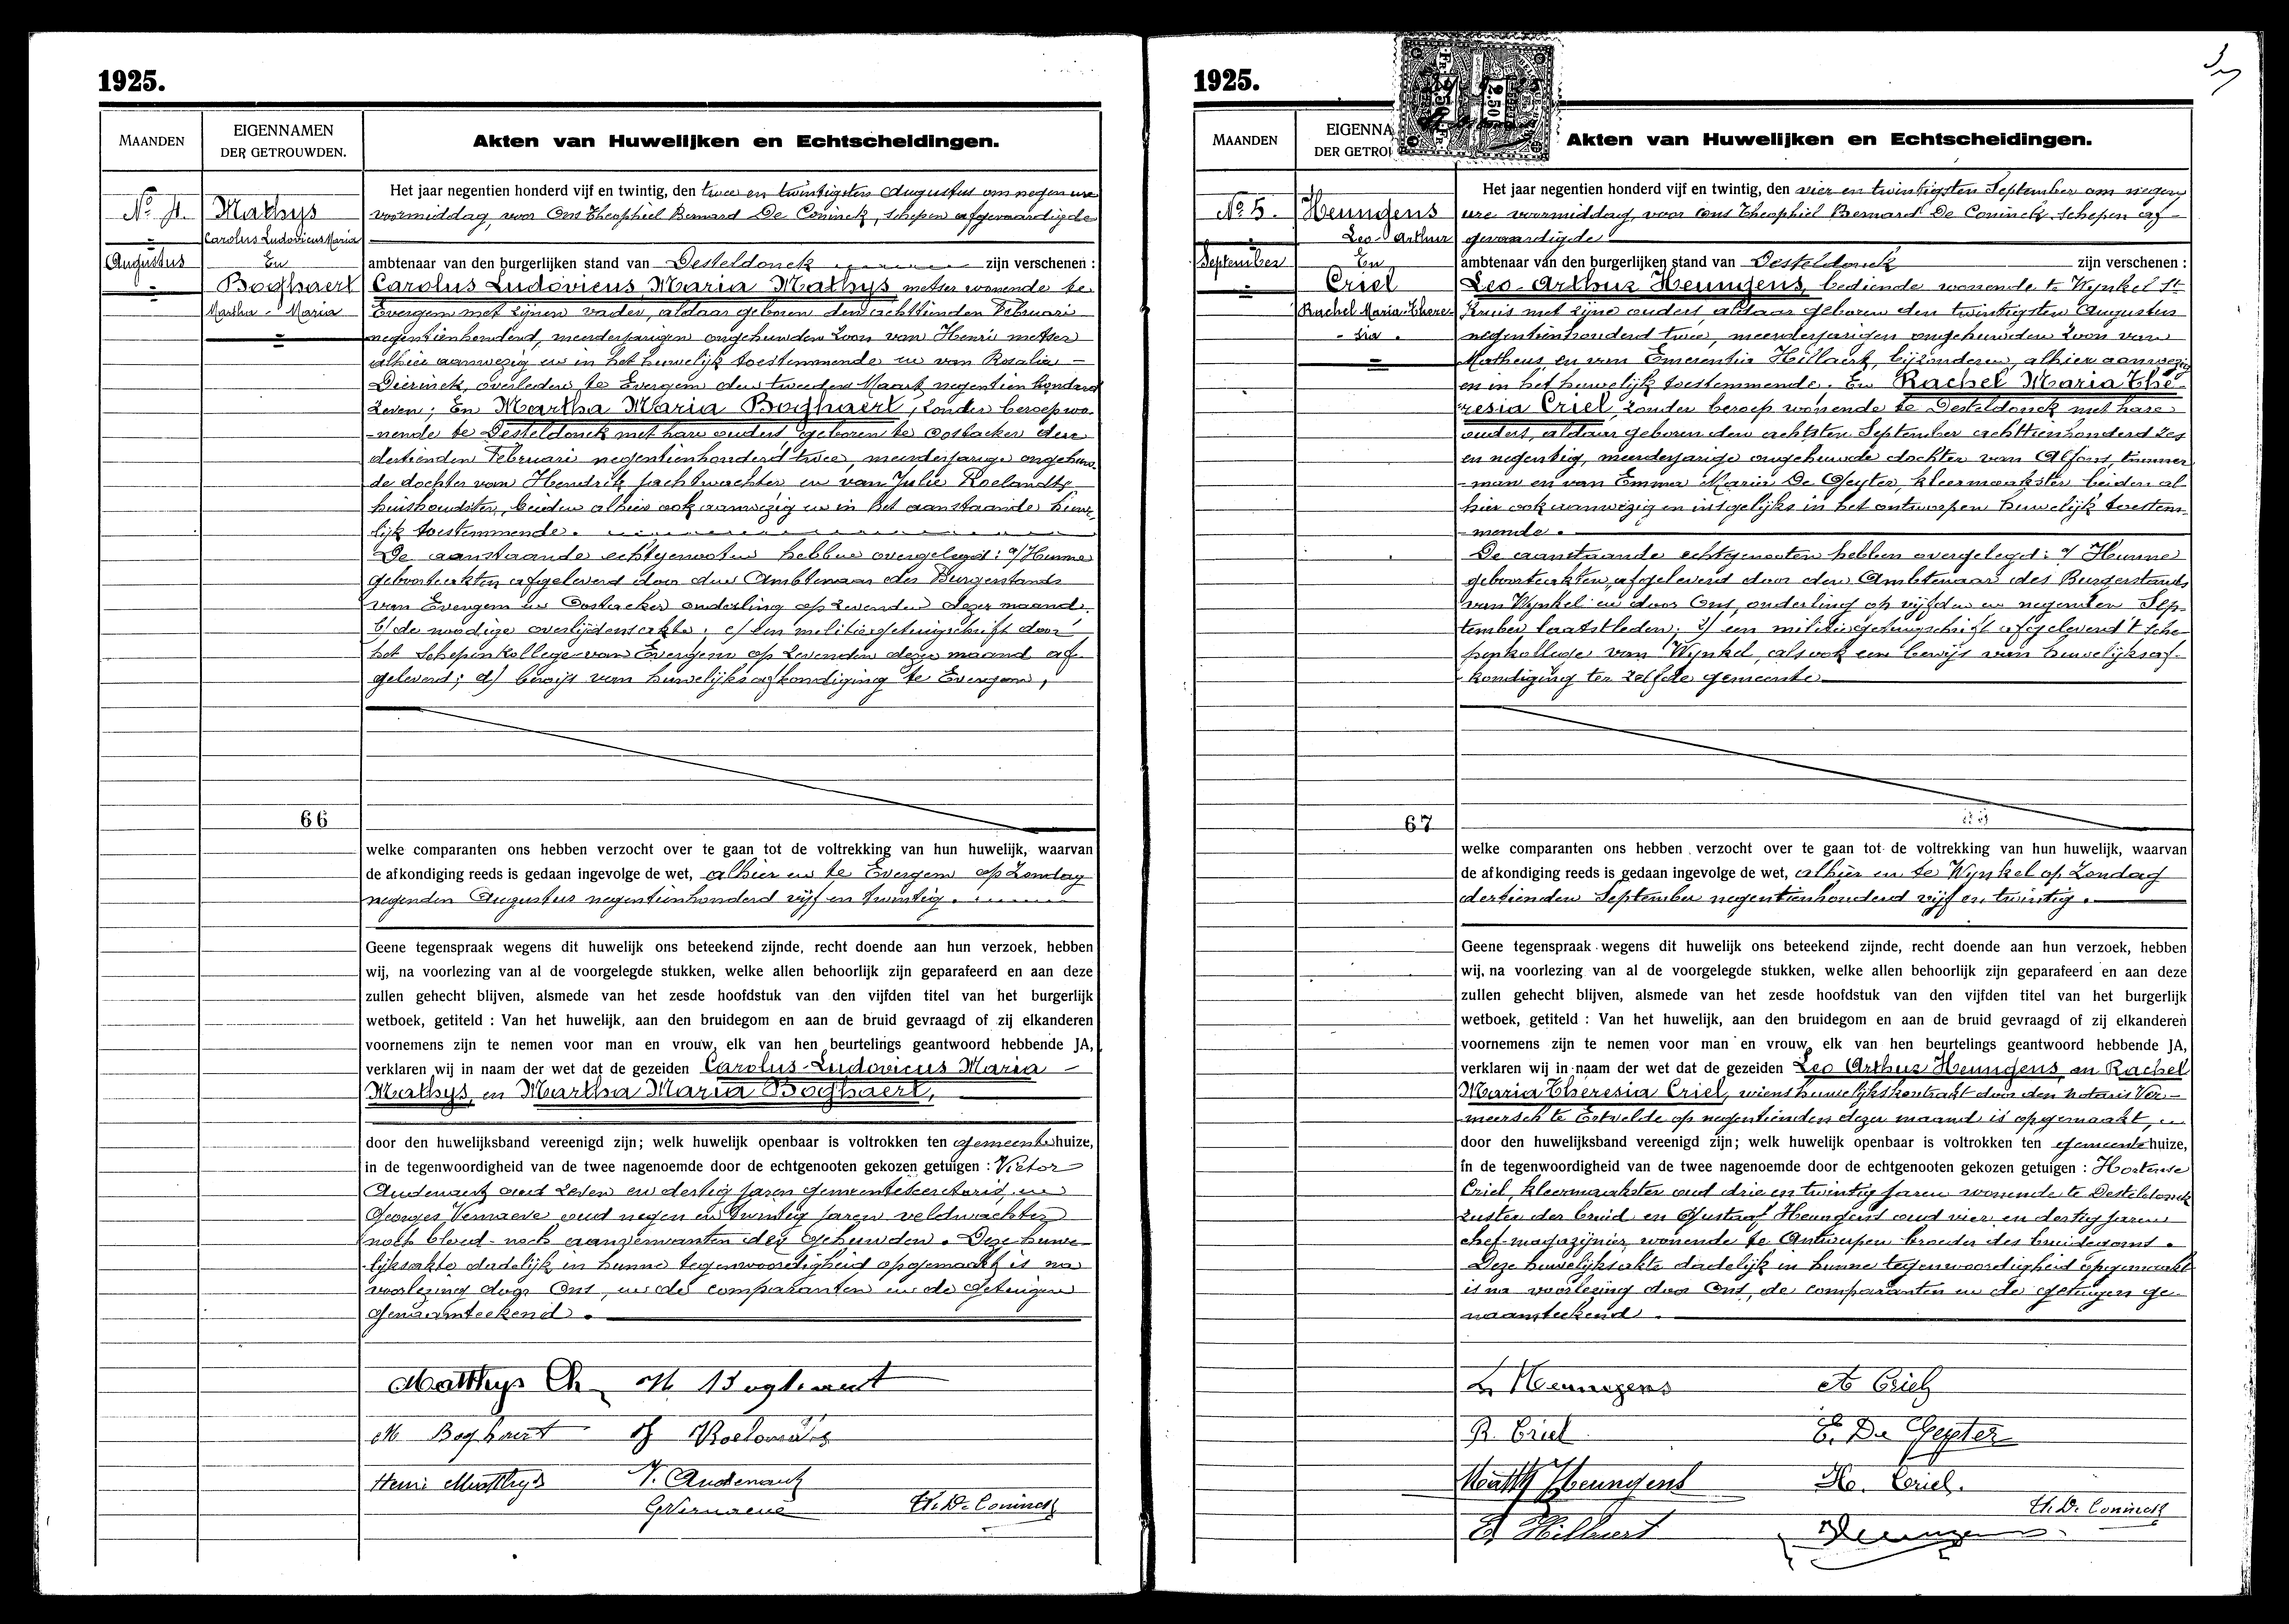 1925.
MAANDEN
EIGENNAMEN
DER GETROUWDEN.
Akten van Huwelijken en Echtscheidingen.
No 4.
Augustus
Mathys
Carolus Ludovicus Maria
En
Boghaert
Martha Maria
66
Het jaar negentien honderd vijf en twintig, den twee en twintigsten Augustus om negen ure
voormiddag, voor Ons Theophiel Bernard De Coninck, schepen afgevaardigde
ambtenaar van den burgerlijken stand van Desteldonck zijn verschenen :
Carolus Ludovicus Maria Mathys metser wonende te
Evergem met zijnen vader, aldaar geboren den achttienden Februari
negentienhonderd, meerderjarigen ongehuwden zoon van Henri metser
alhier aanwezig en in het huwelijk toestemmende en van Rosalia -
Dierinck, overleden te Evergem den tweeden Maart negentien honderd
zeven; En Martha Maria Boghaert, zonder beroep wo-
-nende te Desteldonck met hare ouders geboren te Oostacker den
dertienden Februari negentienhonderd twee, meerderjarige ongehuw-
de dochter van Hendrik jachtwachter en van Julie Roelandts
huishoudster, beiden alhier ook aanwezig en in het aanstaande huwe-
lijk toestemmende.
De aanstaande echtgenooten hebben overgelegd: a/ Hunne
geboorteakten afgeleverd door den Ambtenaar des Burgerstands
van Evergem en Oostacker onderling op zevenden dezer maand.
b/ de noodige overlijdensakte; c/ een militiegetuigschrift door
het Schepenkollege van Evergem op zevenden dezer maand af-
geleverd; d/ bewijs van huwelijksafkondiging te Evergem,
welke comparanten ons hebben verzocht over te gaan tot de voltrekking van hun huwelijk, waarvan
de afkondiging reeds is gedaan ingevolge de wet, alhier en te Evergem op Zondag
negenden Augustus negentienhonderd vijf en twintig.
Geene tegenspraak wegens dit huwelijk ons beteekend zijnde, recht doende aan hun verzoek, hebben
wij, na voorlezing van al de voorgelegde stukken, welke allen behoorlijk zijn geparafeerd en aan deze
zullen gehecht blijven, alsmede van het zesde hoofdstuk van den vijfden titel van het burgerlijk
wetboek, getiteld : Van het huwelijk, aan den bruidegom en aan de bruid gevraagd of zij elkanderen
voornemens zijn te nemen voor man en vrouw, elk van hen beurtelings geantwoord hebbende JA,
verklaren wij in naam der wet dat de gezeiden Carolus-Ludovicus Maria -
Mathys, en Martha Maria Boghaert,
door den huwelijksband vereenigd zijn; welk huwelijk openbaar is voltrokken ten gemeentehuize,
in de tegenwoordigheid van de twee nagenoemde door de echtgenooten gekozen getuigen : Victor
Audenaert oud zeven en dertig jaren gemeentesecretaris, en
Georges Vernaeve oud negen en twintig jaren veldwachter
noch bloed- noch aanverwanten der gehuwden. Deze huwe-
-lijksakte dadelijk in hunne tegenwoordigheid opgemaakt is na
voorlezing door Ons, en de comparanten en de getuigen
genaamteekend.
Matthys Ch H Boghaert
M Boghaert J Roelandts
Henri Matthys V. Audenaert
G Vernaeve Th. De Coninck
1925.
MAANDEN
EIGENNA
DER GETROU
2.50
Akten van Huwelijken en Echtscheidingen.
No 5.
September
Heungens
Leo-Arthur
En
Criel
Rachel Maria There-
- sia.
67
Het jaar negentien honderd vijf en twintig, den vier en twintigsten September om negen
ure voormiddag, voor Ons Theophiel Bernard De Coninck schepen af-
gevaardigde
ambtenaar van den burgerlijken stand van Desteldonck zijn verschenen :
Leo-Arthur Heungens, bediende wonende te Wynkel St
Kruis met zijne ouders aldaar geboren den twintigsten Augustus
negentienhonderd twee, meerderjarigen ongehuwden zoon van
Matheus en van Emerentia Hillaert, bijzonderen, alhier aanwezig
en in het huwelijk toestemmende. En Rachel Maria The-
resia Criel, zonder beroep wonende te Desteldonck met hare
ouders, aldaar geboren den achtsten September achttienhonderd zes
en negentig, meerderjarige ongehuwde dochter van Alfons, timmer
-man en van Emma Maria De Geyter, kleermaakster beiden al
hier ook aanwezig en insgelijks in het ontworpen huwelijk toestem-
-mende.
De aanstaande echtgenooten hebben overgelegd: 1/ Hunne
geboorteakten, afgeleverd door den Ambtenaar des Burgerstands
van Wynkel en door Ons, onderling op vijfden en negenden Sep-
tember laatstleden; 2/ een militiegetuigschrift afgeleverd 't Sche-
penkollege van Wynkel, alsook een bewijs van huwelijksaf-
kondiging ter zelfde gemeente
welke comparanten ons hebben verzocht over te gaan tot de voltrekking van hun huwelijk, waarvan
de afkondiging reeds is gedaan ingevolge de wet, alhier en te Wynkel op Zondag
dertienden September negentienhonderd vijf en twintig.
Geene tegenspraak wegens dit huwelijk ons beteekend zijnde, recht doende aan hun verzoek, hebben
wij, na voorlezing van al de voorgelegde stukken, welke allen behoorlijk zijn geparafeerd en aan deze
zullen gehecht blijven, alsmede van het zesde hoofdstuk van den vijfden titel van het burgerlijk
wetboek, getiteld : Van het huwelijk, aan den bruidegom en aan de bruid gevraagd of zij elkanderen
voornemens zijn te nemen voor man en vrouw, elk van hen beurtelings geantwoord hebbende JA,
verklaren wij in naam der wet dat de gezeiden Leo Arthur Heungens, en Rachel
Maria Theresia Criel, wiens huwelijkskontrakt door den notaris Ver-
meersch te Ertvelde op negentienden dezer maand is opgemaakt,
door den huwelijksband vereenigd zijn; welk huwelijk openbaar is voltrokken ten gemeentehuize,
in de tegenwoordigheid van de twee nagenoemde door de echtgenooten gekozen getuigen : Hortense
Criel, kleermaakster oud drie en twintig jaren wonende te Desteldonck
zuster der bruid en Gustaaf Heungens oud vier en dertig jaren
chef-magazijnier, wonende te Antwerpen broeder des bruidegoms.
Deze huwelijksakte dadelijk in hunne tegenwoordigheid opgemaakt
is na voorlezing door Ons, de comparanten en de getuigen ge-
naamteekend.
L Heungens A Criel
R. Criel E. De Geyter
Matth Heungens Ho. Criel.
Th. De Coninck
E Hillaert Heungens